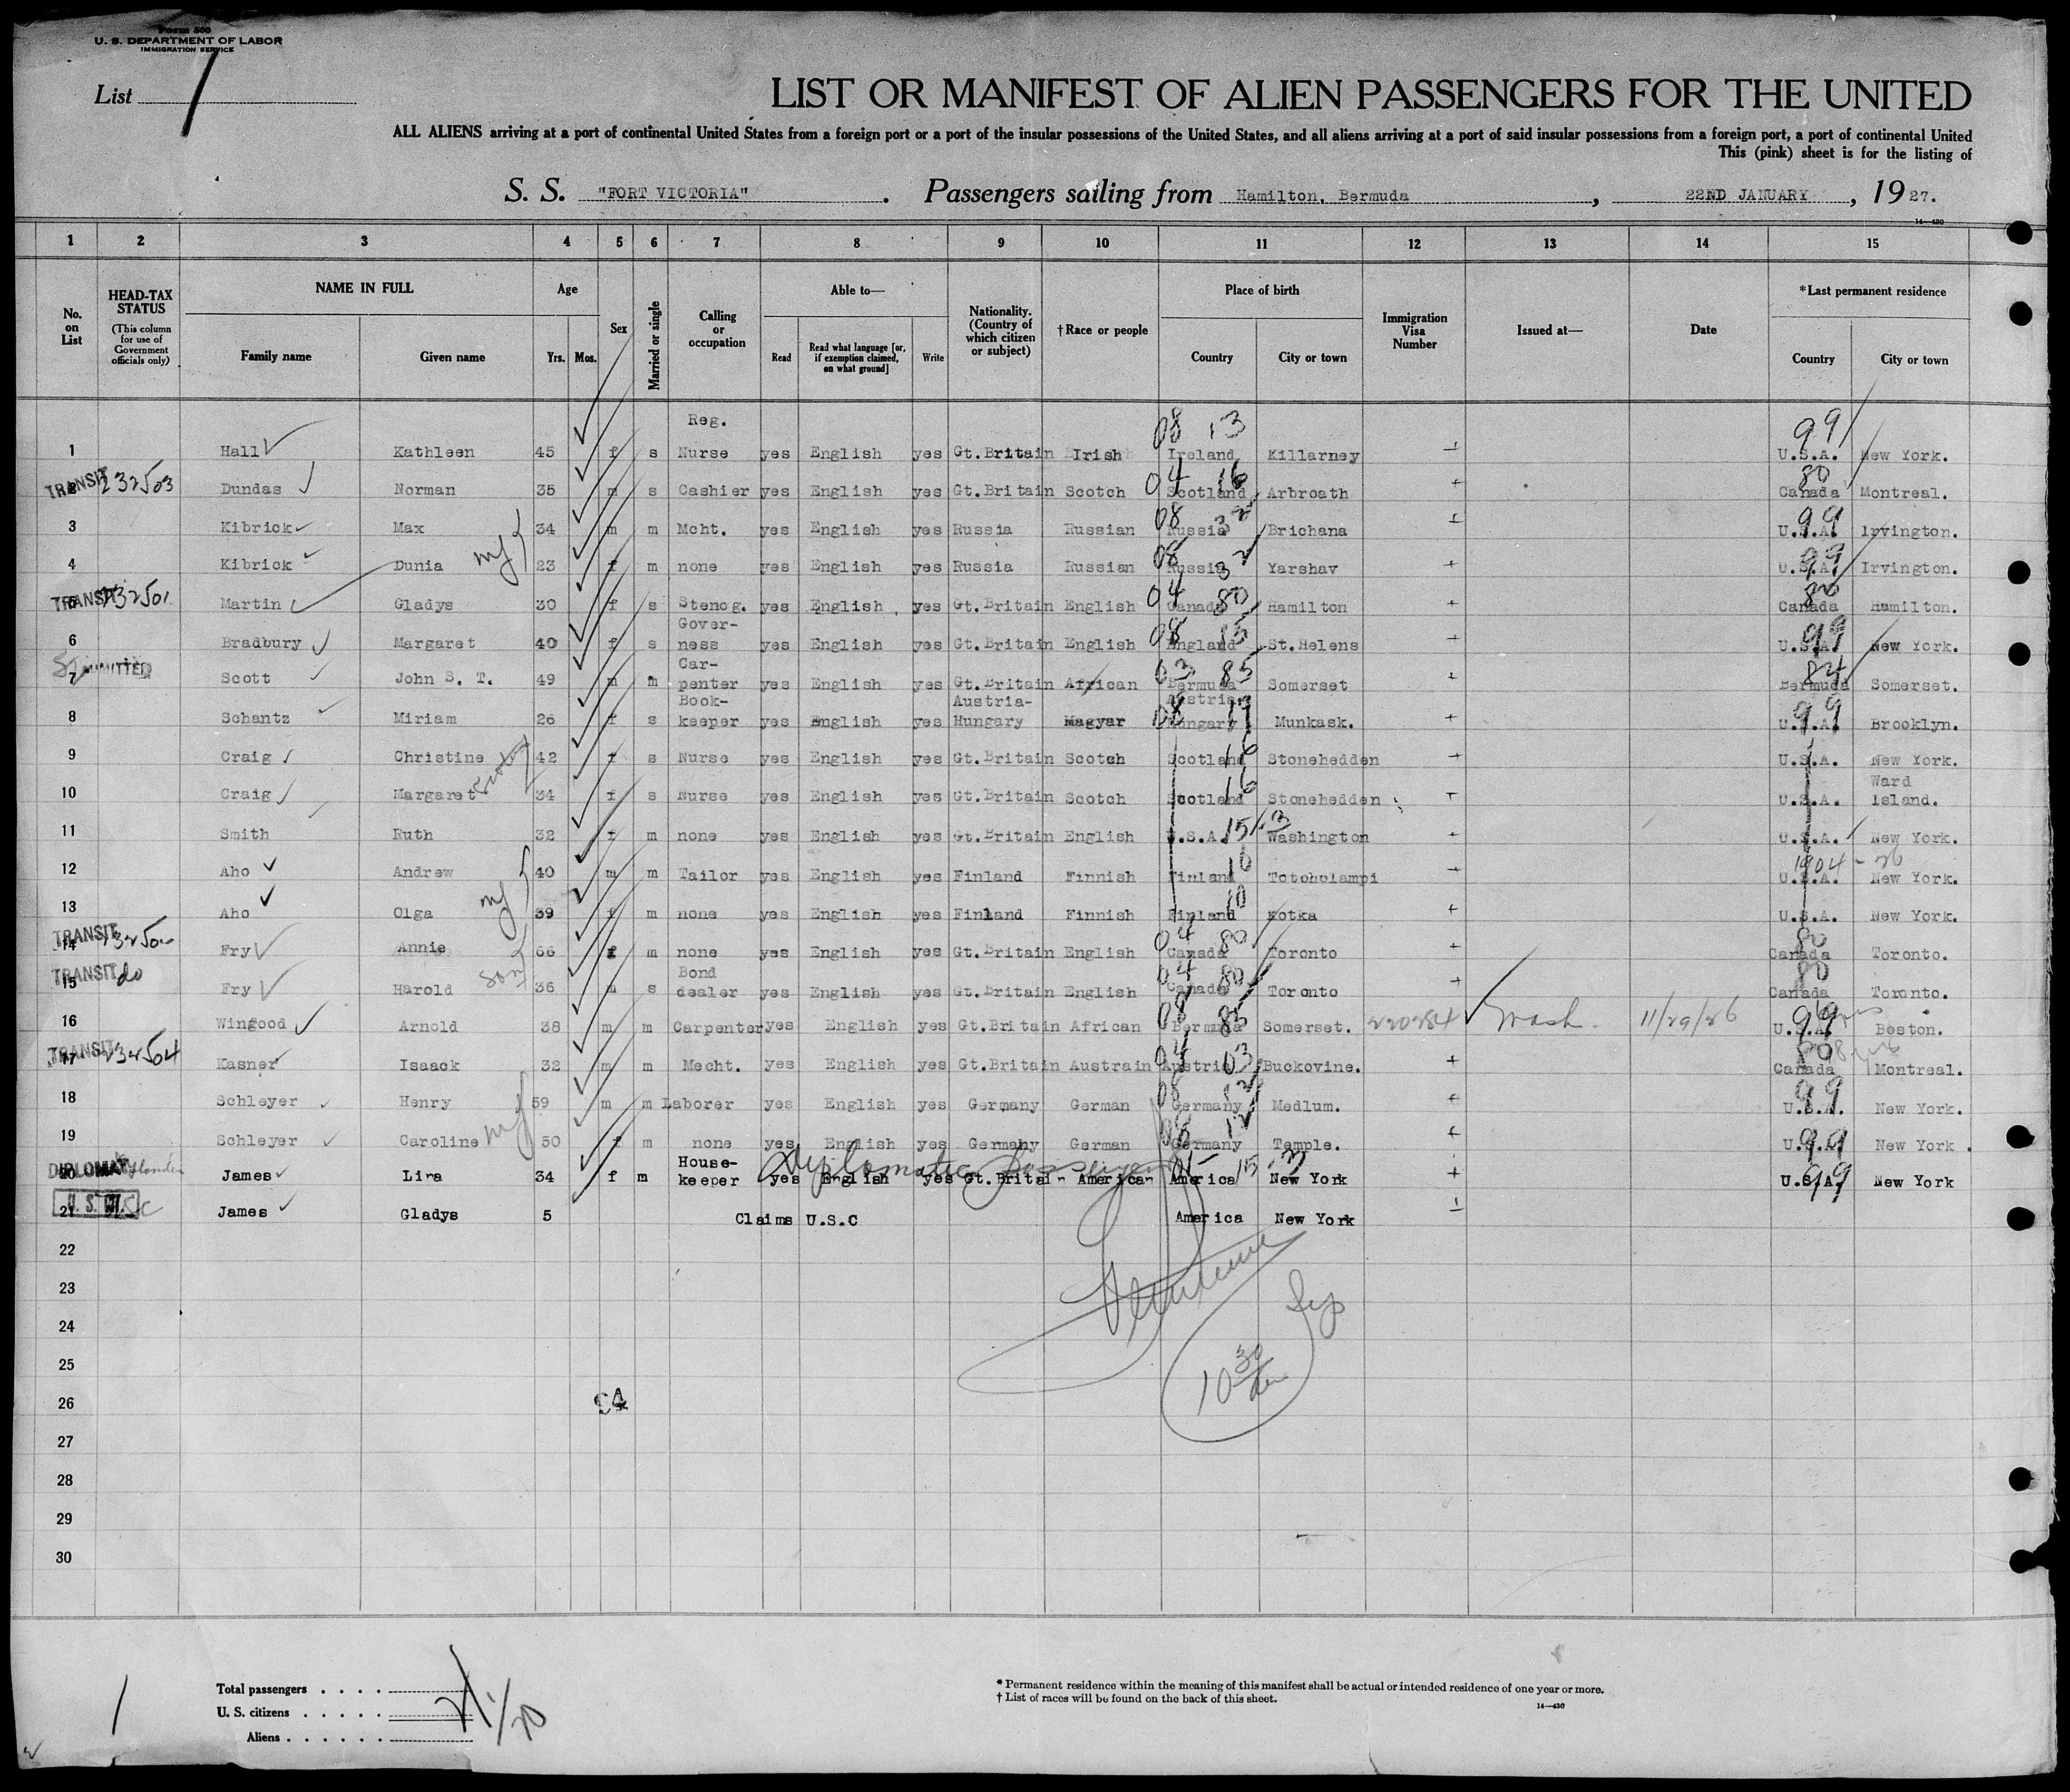 Form 500
U. S. DEPARTMENT OF LABOR
IMMIGRATION SERVICE
List 1
LIST OR MANIFEST OF ALIEN PASSENGERS FOR THE UNITED
ALL ALIENS arriving at a port of continental United States from a foreign port or a port of the insular possessions of the United States, and all aliens arriving at a port of said insular possessions from a foreign port, a port of continental United
This (pink) sheet is for the listing of
S. S. "FORT VICTORIA". Passengers sailing from Hamilton, Bermuda, 22ND JANUARY, 1927.
14—430
1 2 3 4 5 6 7 8 9 10 11 12 13 14 15
No. on List
HEAD-TAX STATUS (This column for use of Government officials only)
NAME IN FULL
Family name Given name
Age
Yrs. Mos.
Sex
Married or single
Calling or occupation
Able to—
Read
Read what language [or, if exemption claimed, on what ground]
Write
Nationality. (Country of which citizen or subject)
†Race or people
Place of birth
Country City or town
Immigration Visa Number
Issued at—
Date
*Last permanent residence
Country City or town
1 Hall Kathleen 45 f s Reg. Nurse yes English yes Gt.Britain Irish Ireland 08 13 Killarney U.S.A. 99 New York.
2 TRANSIT 232503 Dundas Norman 35 m s Cashier yes English yes Gt.Britain Scotch Scotland 04 16 Arbroath Canada 80 Montreal.
3 Kibrick Max 34 m m Mcht. yes English yes Russia Russian Russia 08 32 Brichana U.S.A. 99 Irvington.
4 Kibrick Dunia 23 f m none yes English yes Russia Russian Russia 08 32 Yarshav U.S.A. 99 Irvington.
5 TRANSIT 232501 Martin Gladys 30 f s Stenog. yes English yes Gt.Britain English Canada 04 80 Hamilton Canada 80 Hamilton.
6 Bradbury Margaret 40 f s Gover-ness yes English yes Gt.Britain English England 08 85 St.Helens U.S.A. 99 New York.
7 Scott John S. T. 49 m m Car-penter yes English yes Gt.Britain African Bermuda 03 85 Somerset Bermuda 84 Somerset.
8 Schantz Miriam 26 f s Book-keeper yes English yes Austria-Hungary Magyar Austria Hungary 08 19 Munkask. U.S.A. 99 Brooklyn.
9 Craig Christine 42 f s Nurse yes English yes Gt.Britain Scotch Scotland 16 Stonehedden U.S.A. New York.
10 Craig Margaret 34 f s Nurse yes English yes Gt.Britain Scotch Scotland 16 Stonehedden U.S.A. Ward Island.
11 Smith Ruth 32 f m none yes English yes Gt.Britain English U.S.A. 15 Washington U.S.A. New York.
12 Aho Andrew 40 m m Tailor yes English yes Finland Finnish Finland 10 Totoholampi U.S.A. 1904-26 New York.
13 Aho Olga 39 f m none yes English yes Finland Finnish Finland 10 Kotka U.S.A. New York.
14 TRANSIT Fry Annie 66 f m none yes English yes Gt.Britain English Canada 04 80 Toronto Canada 80 Toronto.
15 TRANSIT do Fry Harold son 36 m s Bond dealer yes English yes Gt.Britain English Canada 04 80 Toronto Canada 80 Toronto.
16 Wingood Arnold 38 m m Carpenter yes English yes Gt.Britain African Bermuda 08 85 Somerset. 220284 Wash. 11/29/26 U.S.A. 99 Boston.
17 TRANSIT 232504 Kasner Isaack 32 m m Mecht. yes English yes Gt.Britain Austrain Austria 04 03 Buckovine. Canada 80 Montreal.
18 Schleyer Henry 59 m m Laborer yes English yes Germany German Germany 08 12 Medlum. U.S.A. 99 New York.
19 Schleyer Caroline 50 f m none yes English yes Germany German Germany 08 12 Temple. U.S.A. 99 New York.
20 DIPLOMAT James Lira 34 f m House-keeper yes English yes Gt.Britai- America- America 15 New York U.S.A. 99 New York
Diplomatic Passport
21 U. S. James Gladys 5 Claims U.S.C America New York
22
23
24
25
26
27
28
29
30
94
10 30
Total passengers
U. S. citizens
Aliens
21 1/20
* Permanent residence within the meaning of this manifest shall be actual or intended residence of one year or more.
† List of races will be found on the back of this sheet.
14—430